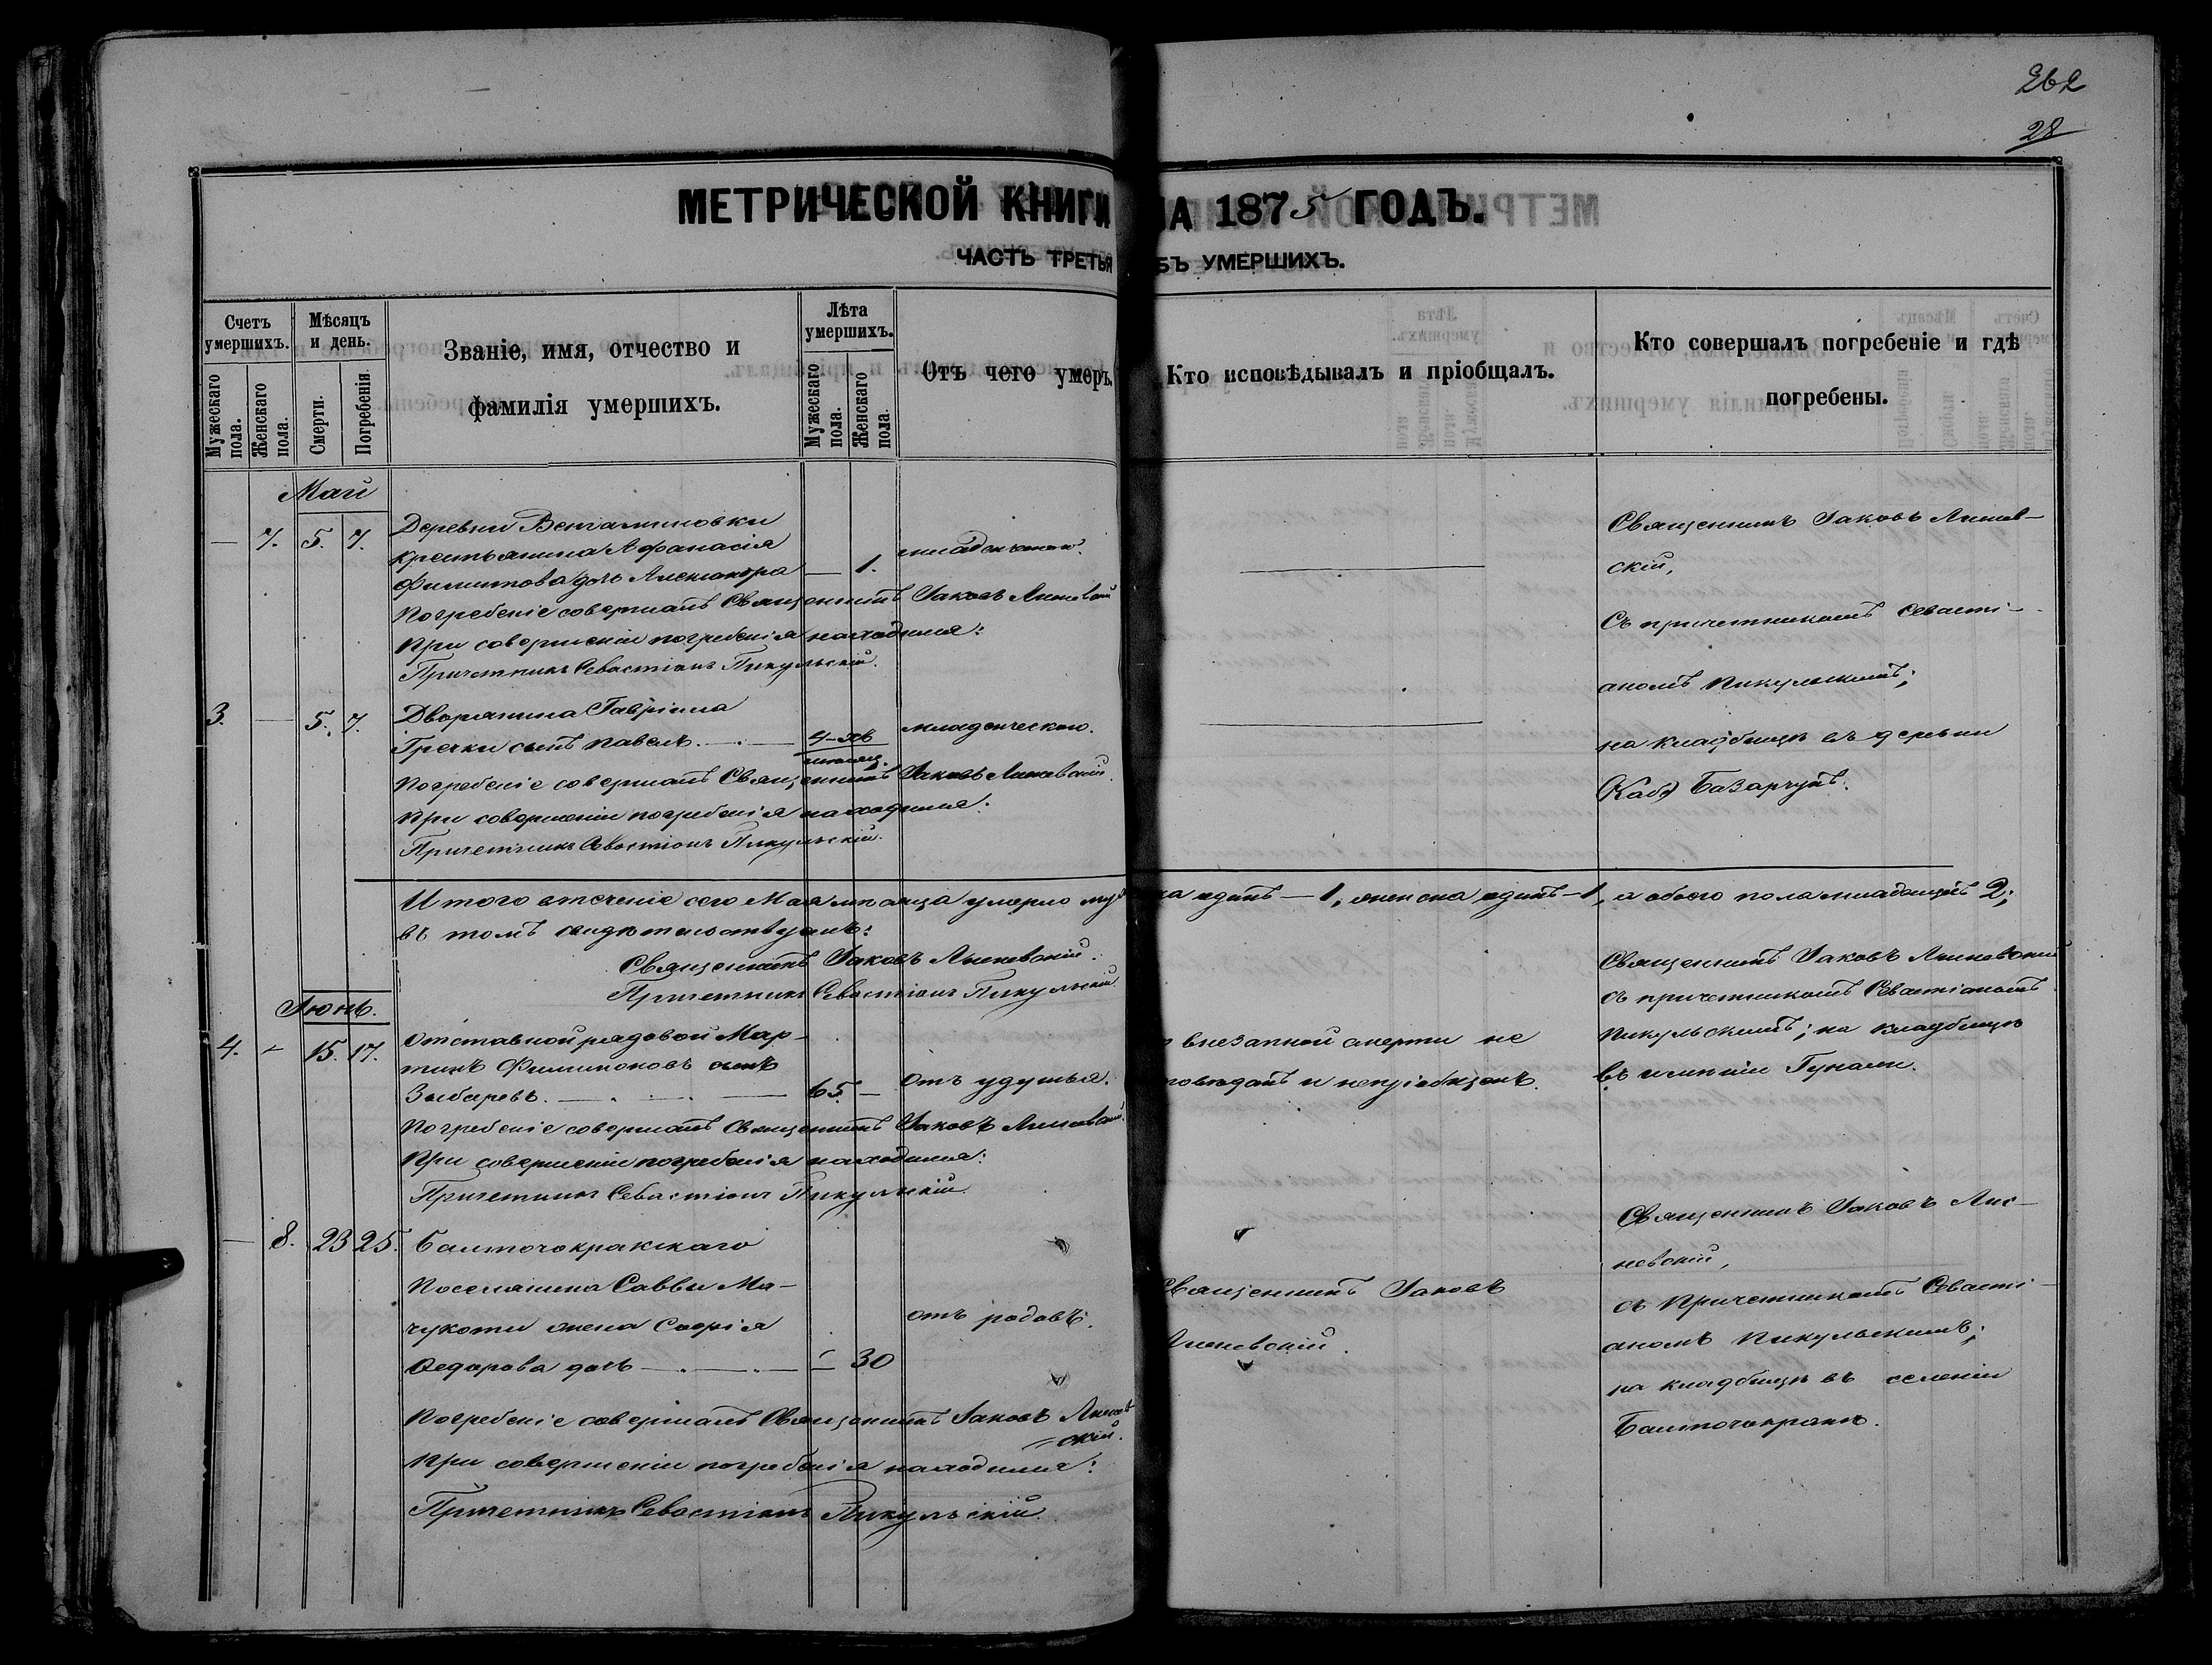 262
28
МЕТРИЧЕСКОЙ КНИГИ НА 1875 ГОДЪ.
ЧАСТЬ ТРЕТЬЯ ОБЪ УМЕРШИХЪ.
Счетъ умершихъ.
Мужескаго пола.
Женскаго пола.
Мѣсяцъ и день.
Смерти.
Погребенія.
Званіе, имя, отчество и
фамилія умершихъ.
Лѣта умершихъ.
Мужескаго пола.
Женскаго пола.
Отъ чего умеръ.
Кто исповѣдывалъ и пріобщалъ.
Кто совершалъ погребеніе и гдѣ
погребены.
Май
— 7. 5. 7. Деревни Веніаминовки
крестьянина Афанасія
Филипова дочь Александра — 1.
Погребеніе совершалъ Священникъ Іаковъ Линевскій
При совершеніи погребенія находился:
Причетникъ Севастіанъ Пикульскій.
Священникъ Іаковъ Линев-
скій,
Съ причетникомъ Севасті-
аномъ Пикульскимъ;
на кладбищѣ въ деревни
Базарчукъ.
3. — 5. 7. Дворянина Гавріила
Гречки сынъ Павелъ. — 4-хъ младенческаго.
Погребеніе совершалъ Священникъ Іаковъ Линевскій.
При совершеніи погребенія находился:
Причетникъ Севастіанъ Пикульскій.
Итого втеченіе сего Мая мѣсяца умерло муж ка одинъ — 1, женска одинъ — 1, а обоего пола младенцевъ 2;
въ томъ свидѣтельствуемъ:
Священникъ Іаковъ Линевскій.
Причетникъ Севастіанъ Пикульскій
Іюнь.
4. — 15. 17. Отставной рядовой Мар-
тинъ Филимоновъ сынъ
Зыбаревъ. — 65. — Отъ удушья.
внезапной смерти не
повѣданъ и непріобщенъ.
Священникъ Іаковъ Линевскій
съ причетникомъ Севастіаномъ
Пикульскимъ; на кладбищѣ
въ имѣніи
Погребеніе совершалъ Священникъ Іаковъ Линевскій.
При совершеніи погребенія находился:
Причетникъ Севастіанъ Пикульскій
— 8. 23 25. Балточокракскаго
Поселянина Саввы Ма-
чукоти жена Софія
Ѳедорова дочь — 30
отъ родовъ.
Священникъ Іаковъ
Линевскій.
Священникъ Іаковъ Ли-
невскій,
съ Причетникомъ Севасті-
аномъ Пикульскимъ;
на кладбищѣ въ селеніи
Балточокракъ.
Погребеніе совершалъ Священникъ Іаковъ Линев-
скій.
При совершеніи погребенія находился:
Причетникъ Севастіанъ Пикульскій